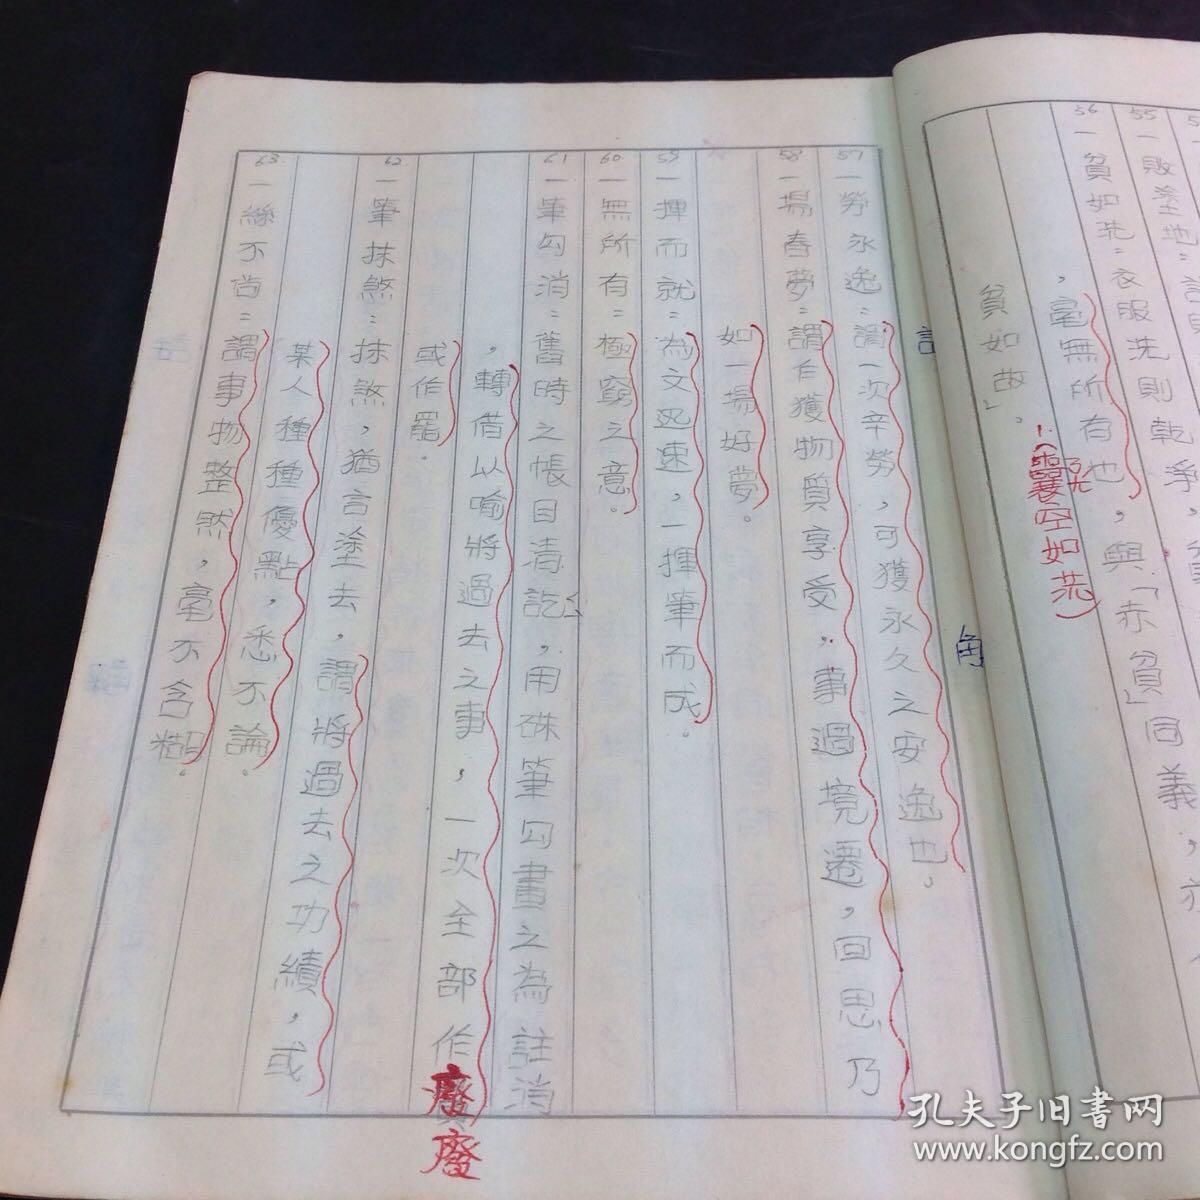 55一敗塗地：
56一貧如洗：衣服洗則乾淨，
，毫無所有也，與「赤貧」同義，亦
貧如故」。
(囊空如洗)
57一勞永逸：謂一次辛勞，可獲永久之安逸也。
58一場春夢：謂乍獲物質享受，事過境遷，回思乃
如一場好夢。
59一揮而就：為文迅速，一揮筆而成。
60一無所有：極窮之意。
61一筆勾消：舊時之帳目清訖，用硃筆勾畫之為註消
，轉借以喻將過去之事，一次全部作廢
廢
或作罷。
62一筆抹煞：抹煞，猶言塗去，謂將過去之功績，或
某人種種優點，悉不論。
63一絲不苟：謂事物整然，毫不含糊。
孔夫子旧书网
www.kongfz.com